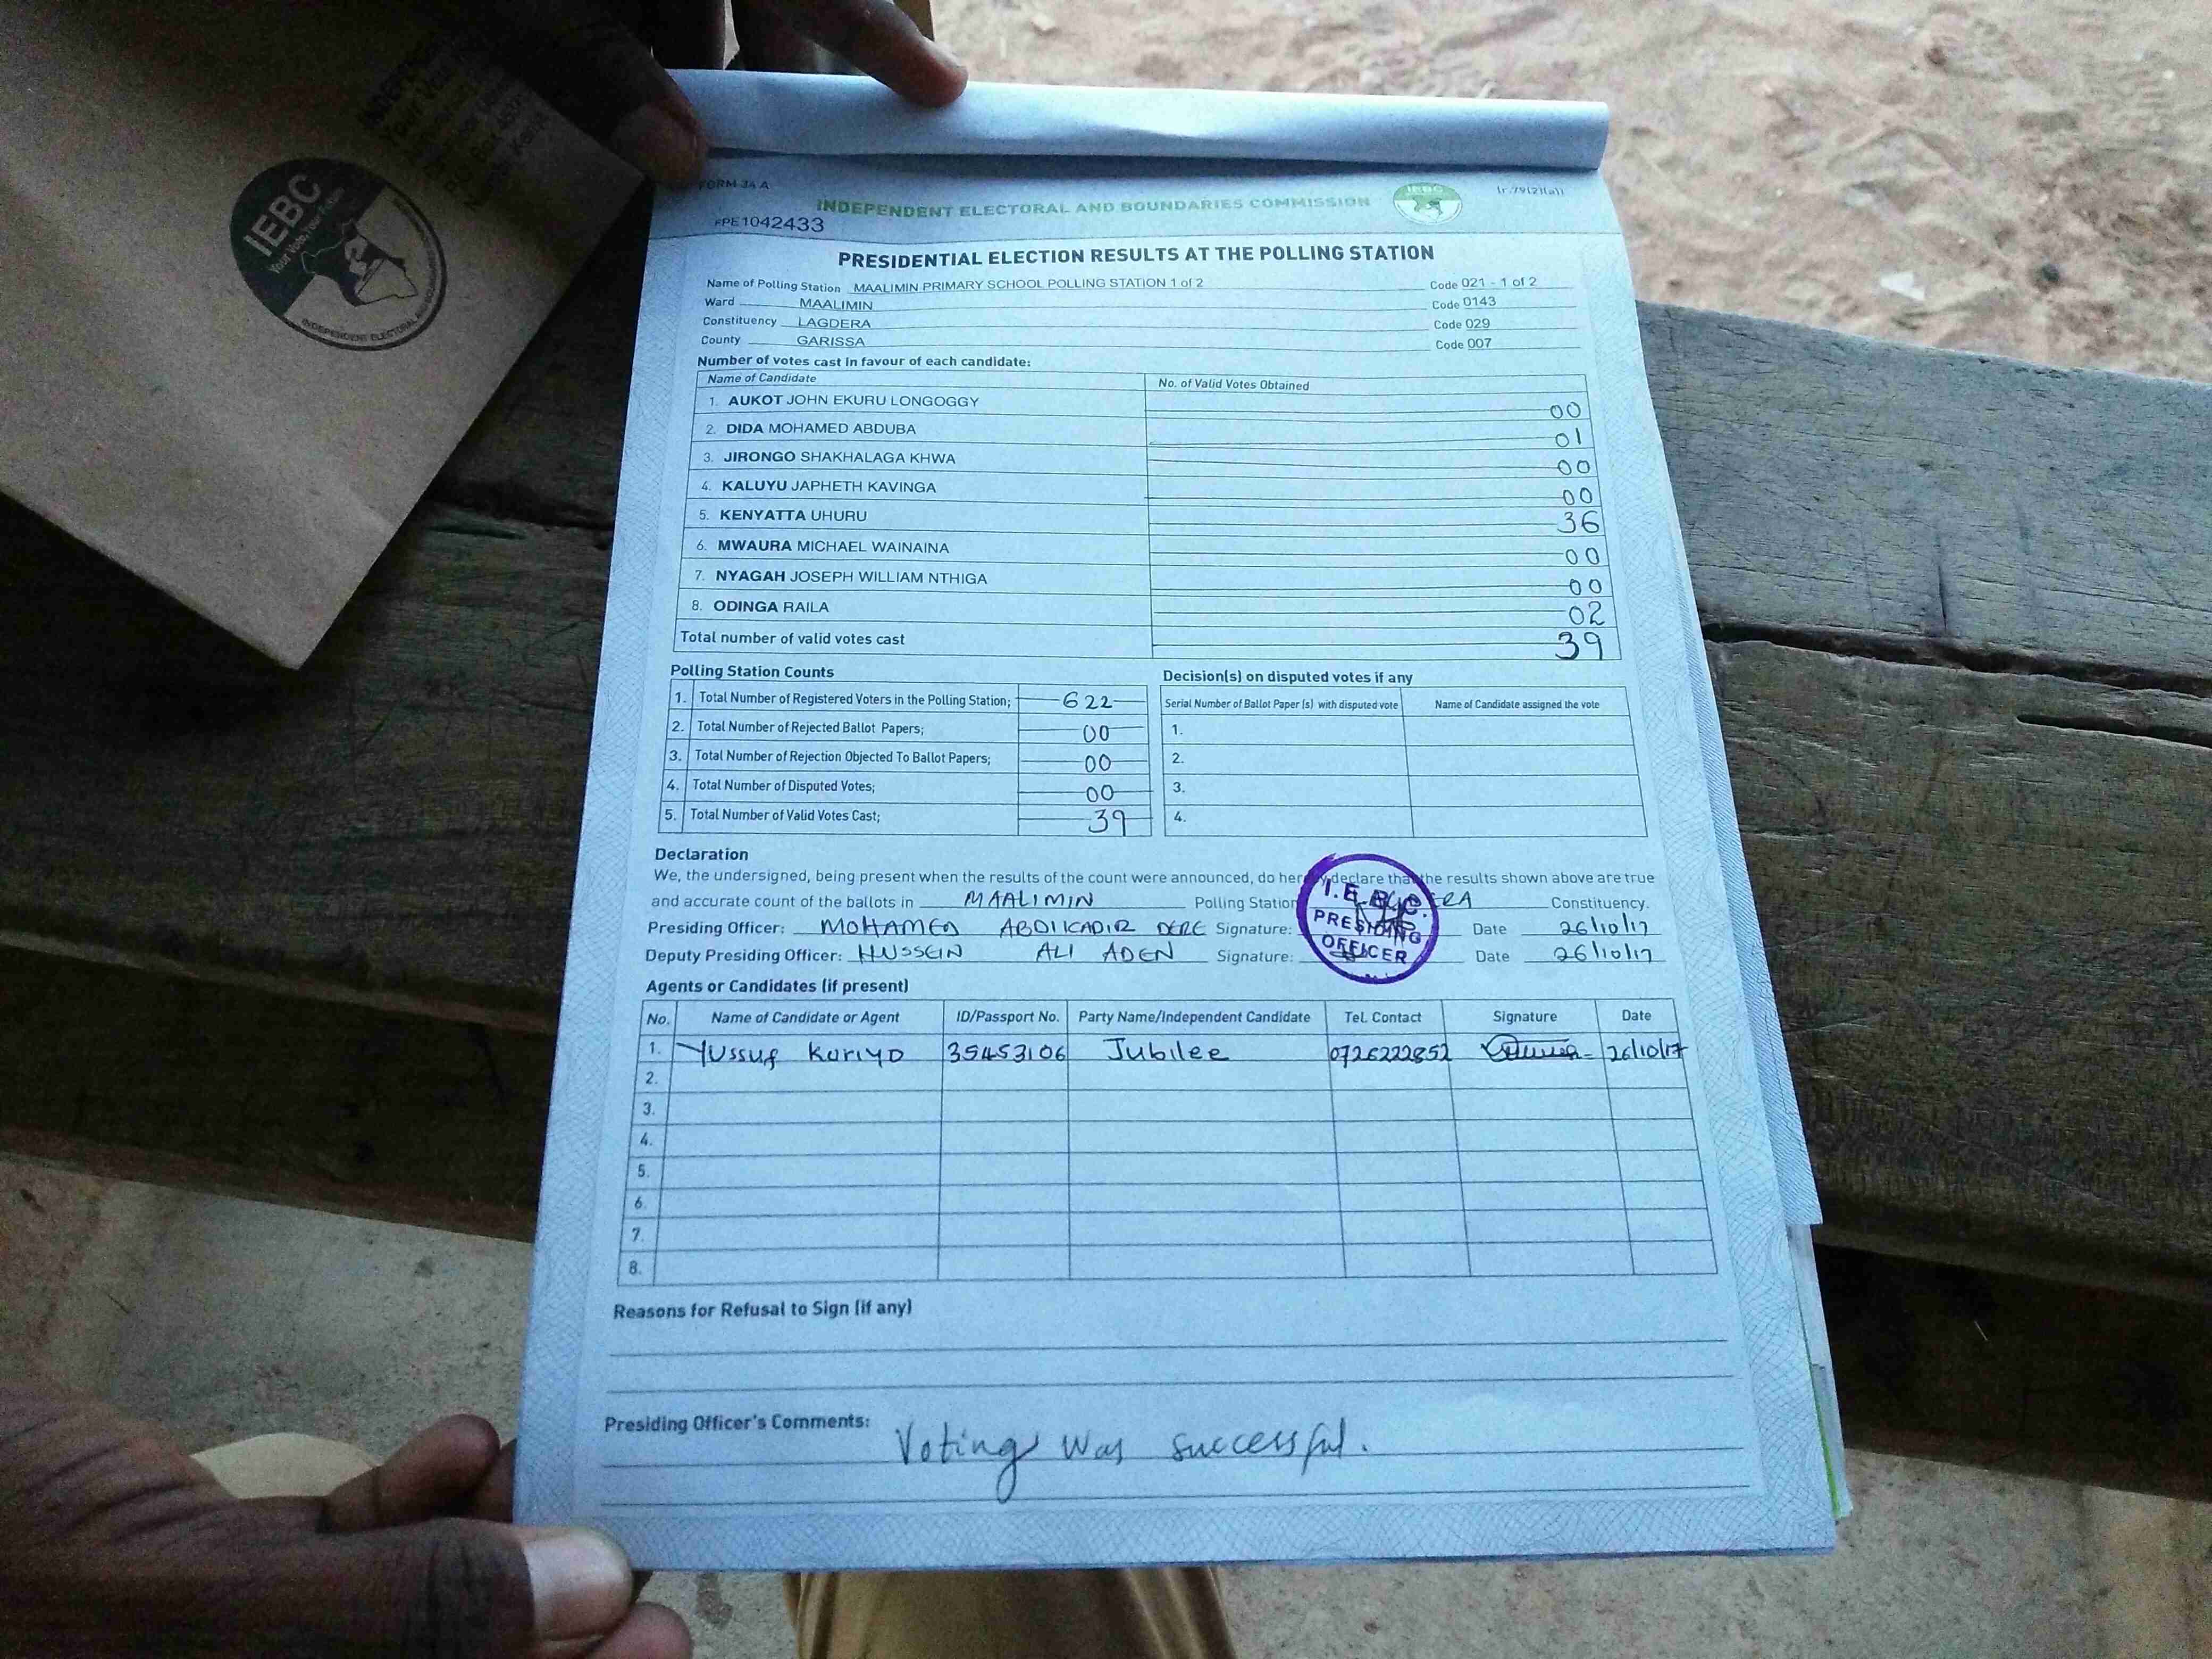 IEBC
Your Vote, Your Future
INDEPENDENT ELECTORAL
FORM 34 A
(r.79(2)(a))
INDEPENDENT ELECTORAL AND BOUNDARIES COMMISSION
IEBC
PE1042433
PRESIDENTIAL ELECTION RESULTS AT THE POLLING STATION
Name of Polling Station MAALIMIN PRIMARY SCHOOL POLLING STATION 1 of 2 Code 021 - 1 of 2
Ward MAALIMIN Code 0143
Constituency LAGDERA Code 029
County GARISSA Code 007
Number of votes cast in favour of each candidate:
Name of Candidate No. of Valid Votes Obtained
1. AUKOT JOHN EKURU LONGOGGY 00
2. DIDA MOHAMED ABDUBA 01
3. JIRONGO SHAKHALAGA KHWA 00
4. KALUYU JAPHETH KAVINGA 00
5. KENYATTA UHURU 36
6. MWAURA MICHAEL WAINAINA 00
7. NYAGAH JOSEPH WILLIAM NTHIGA 00
8. ODINGA RAILA 02
Total number of valid votes cast 39
Polling Station Counts
1. Total Number of Registered Voters in the Polling Station; 622
2. Total Number of Rejected Ballot Papers; 00
3. Total Number of Rejection Objected To Ballot Papers; 00
4. Total Number of Disputed Votes; 00
5. Total Number of Valid Votes Cast; 39
Decision(s) on disputed votes if any
Serial Number of Ballot Paper (s) with disputed vote Name of Candidate assigned the vote
1.
2.
3.
4.
Declaration
We, the undersigned, being present when the results of the count were announced, do hereby declare that the results shown above are true
and accurate count of the ballots in MAALIMIN Polling Station Constituency.
Presiding Officer: MOHAMED ABDIKADIR DERE Signature: Date 26/10/17
Deputy Presiding Officer: HUSSEIN ALI ADEN Signature: Date 26/10/17
I.E.B.C.
PRESIDING
OFFICER
Agents or Candidates (if present)
No. Name of Candidate or Agent ID/Passport No. Party Name/Independent Candidate Tel. Contact Signature Date
1. Yussuf Kuriyo 35453106 Jubilee 0726222852 26/10/17
2.
3.
4.
5.
6.
7.
8.
Reasons for Refusal to Sign (if any)
Presiding Officer's Comments: Voting was successful.